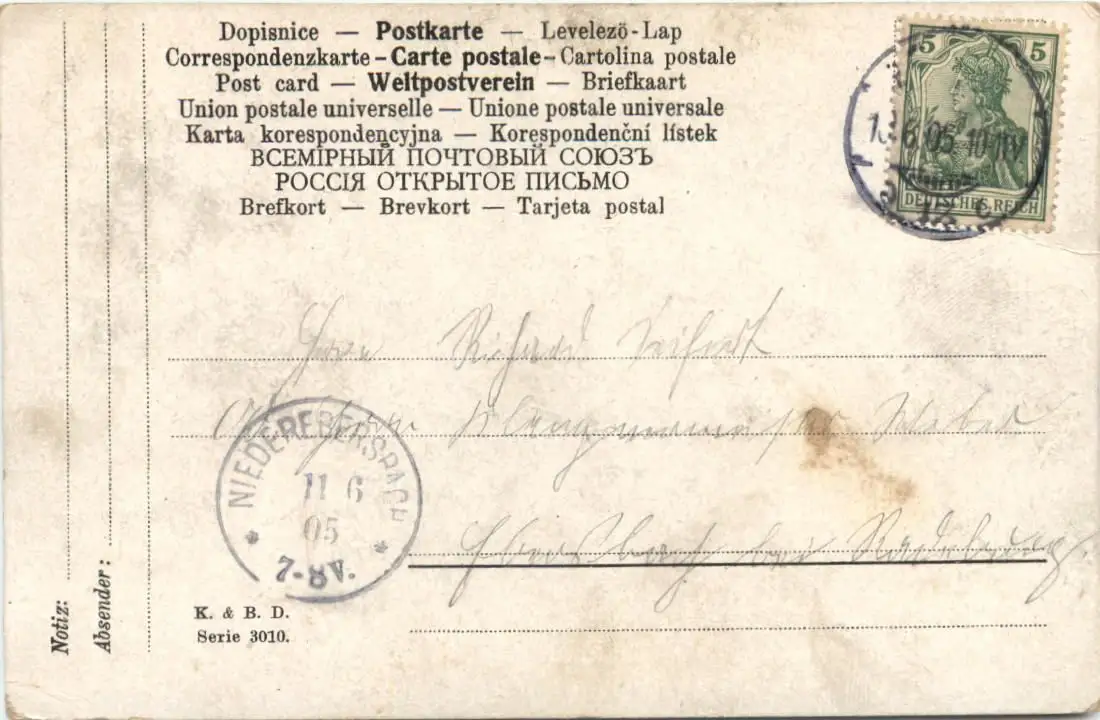 Dopisnice — Postkarte — Levelező-Lap
Correspondenzkarte – Carte postale – Cartolina postale
Post card — Weltpostverein — Briefkaart
Union postale universelle — Unione postale universale
Karta korespondencyjna — Korespondenční lístek
ВСЕМІРНЫЙ ПОЧТОВЫЙ СОЮЗЪ
РОССІЯ ОТКРЫТОЕ ПИСЬМО
Brefkort — Brevkort — Tarjeta postal
5 5
6 05 10-11V.
DEUTSCHES REICH
Richard
bei Radeburg
NIEDEREBERSBACH
11 6
05
7-8V.
Notiz:
Absender:
K. & B. D.
Serie 3010.